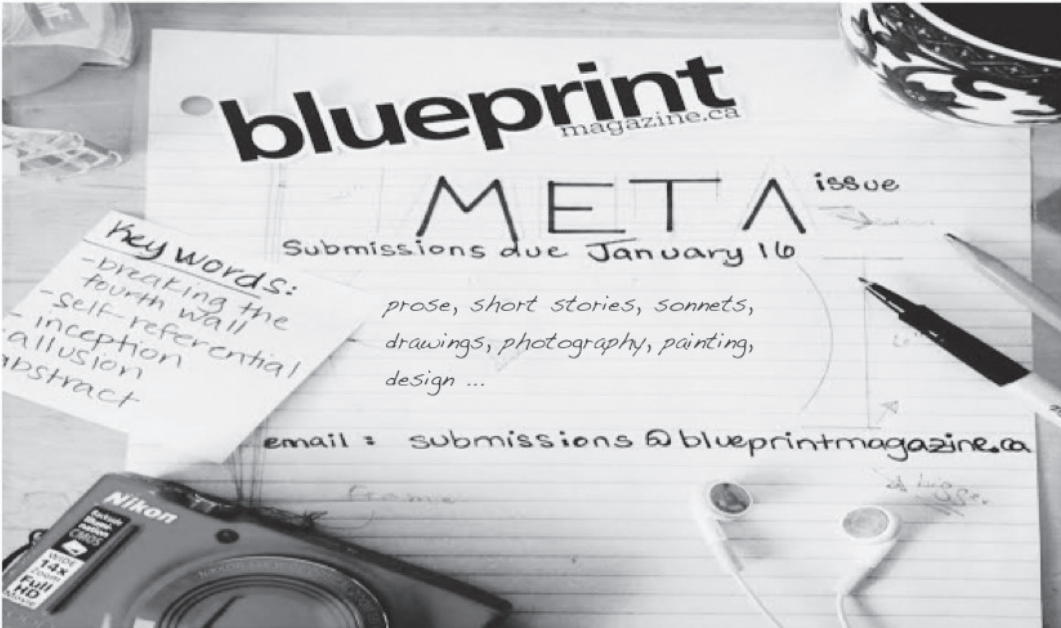 blueprint
magazine.ca
META issue
Submissions due January 16
Key words:
-breaking the
fourth wall
-self-referential
- inception
allusion
abstract
prose, short stories, sonnets,
drawings, photography, painting,
design ...
email : submissions @ blueprintmagazine.ca
frame
Nikon
Backside
illumi-
nation
CMOS
WIDE
14x
Zoom
Full
HD
Movie